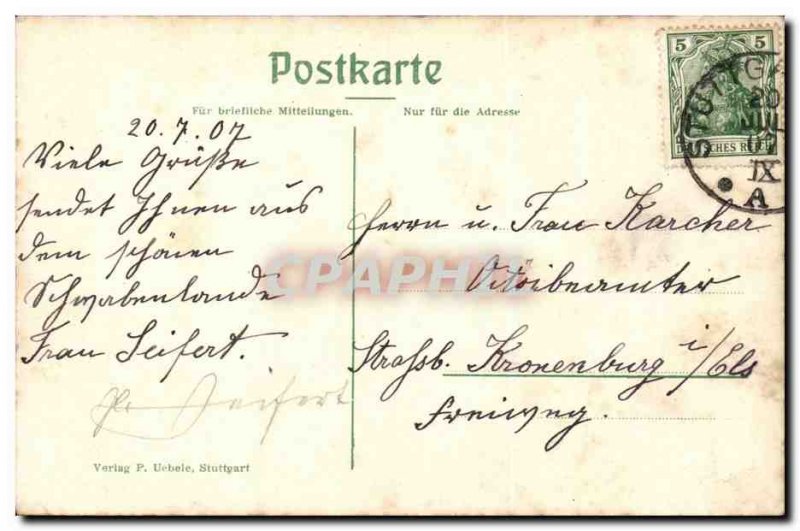 Postkarte
Für briefliche Mitteilungen.
Nur für die Adresse
5 5
DEUTSCHES REICH
STUTTGA
20
JUL
07
IX
A
20.7.07
Viele Grüße
sendet Ihnen aus
dem schönen
Schwabenlande
Frau Seifert.
Seifert
Herrn u. Frau Karcher
Straßb. Kronenburg i/Els
Freiweg.
CPAPHIL
Verlag P. Uebele, Stuttgart